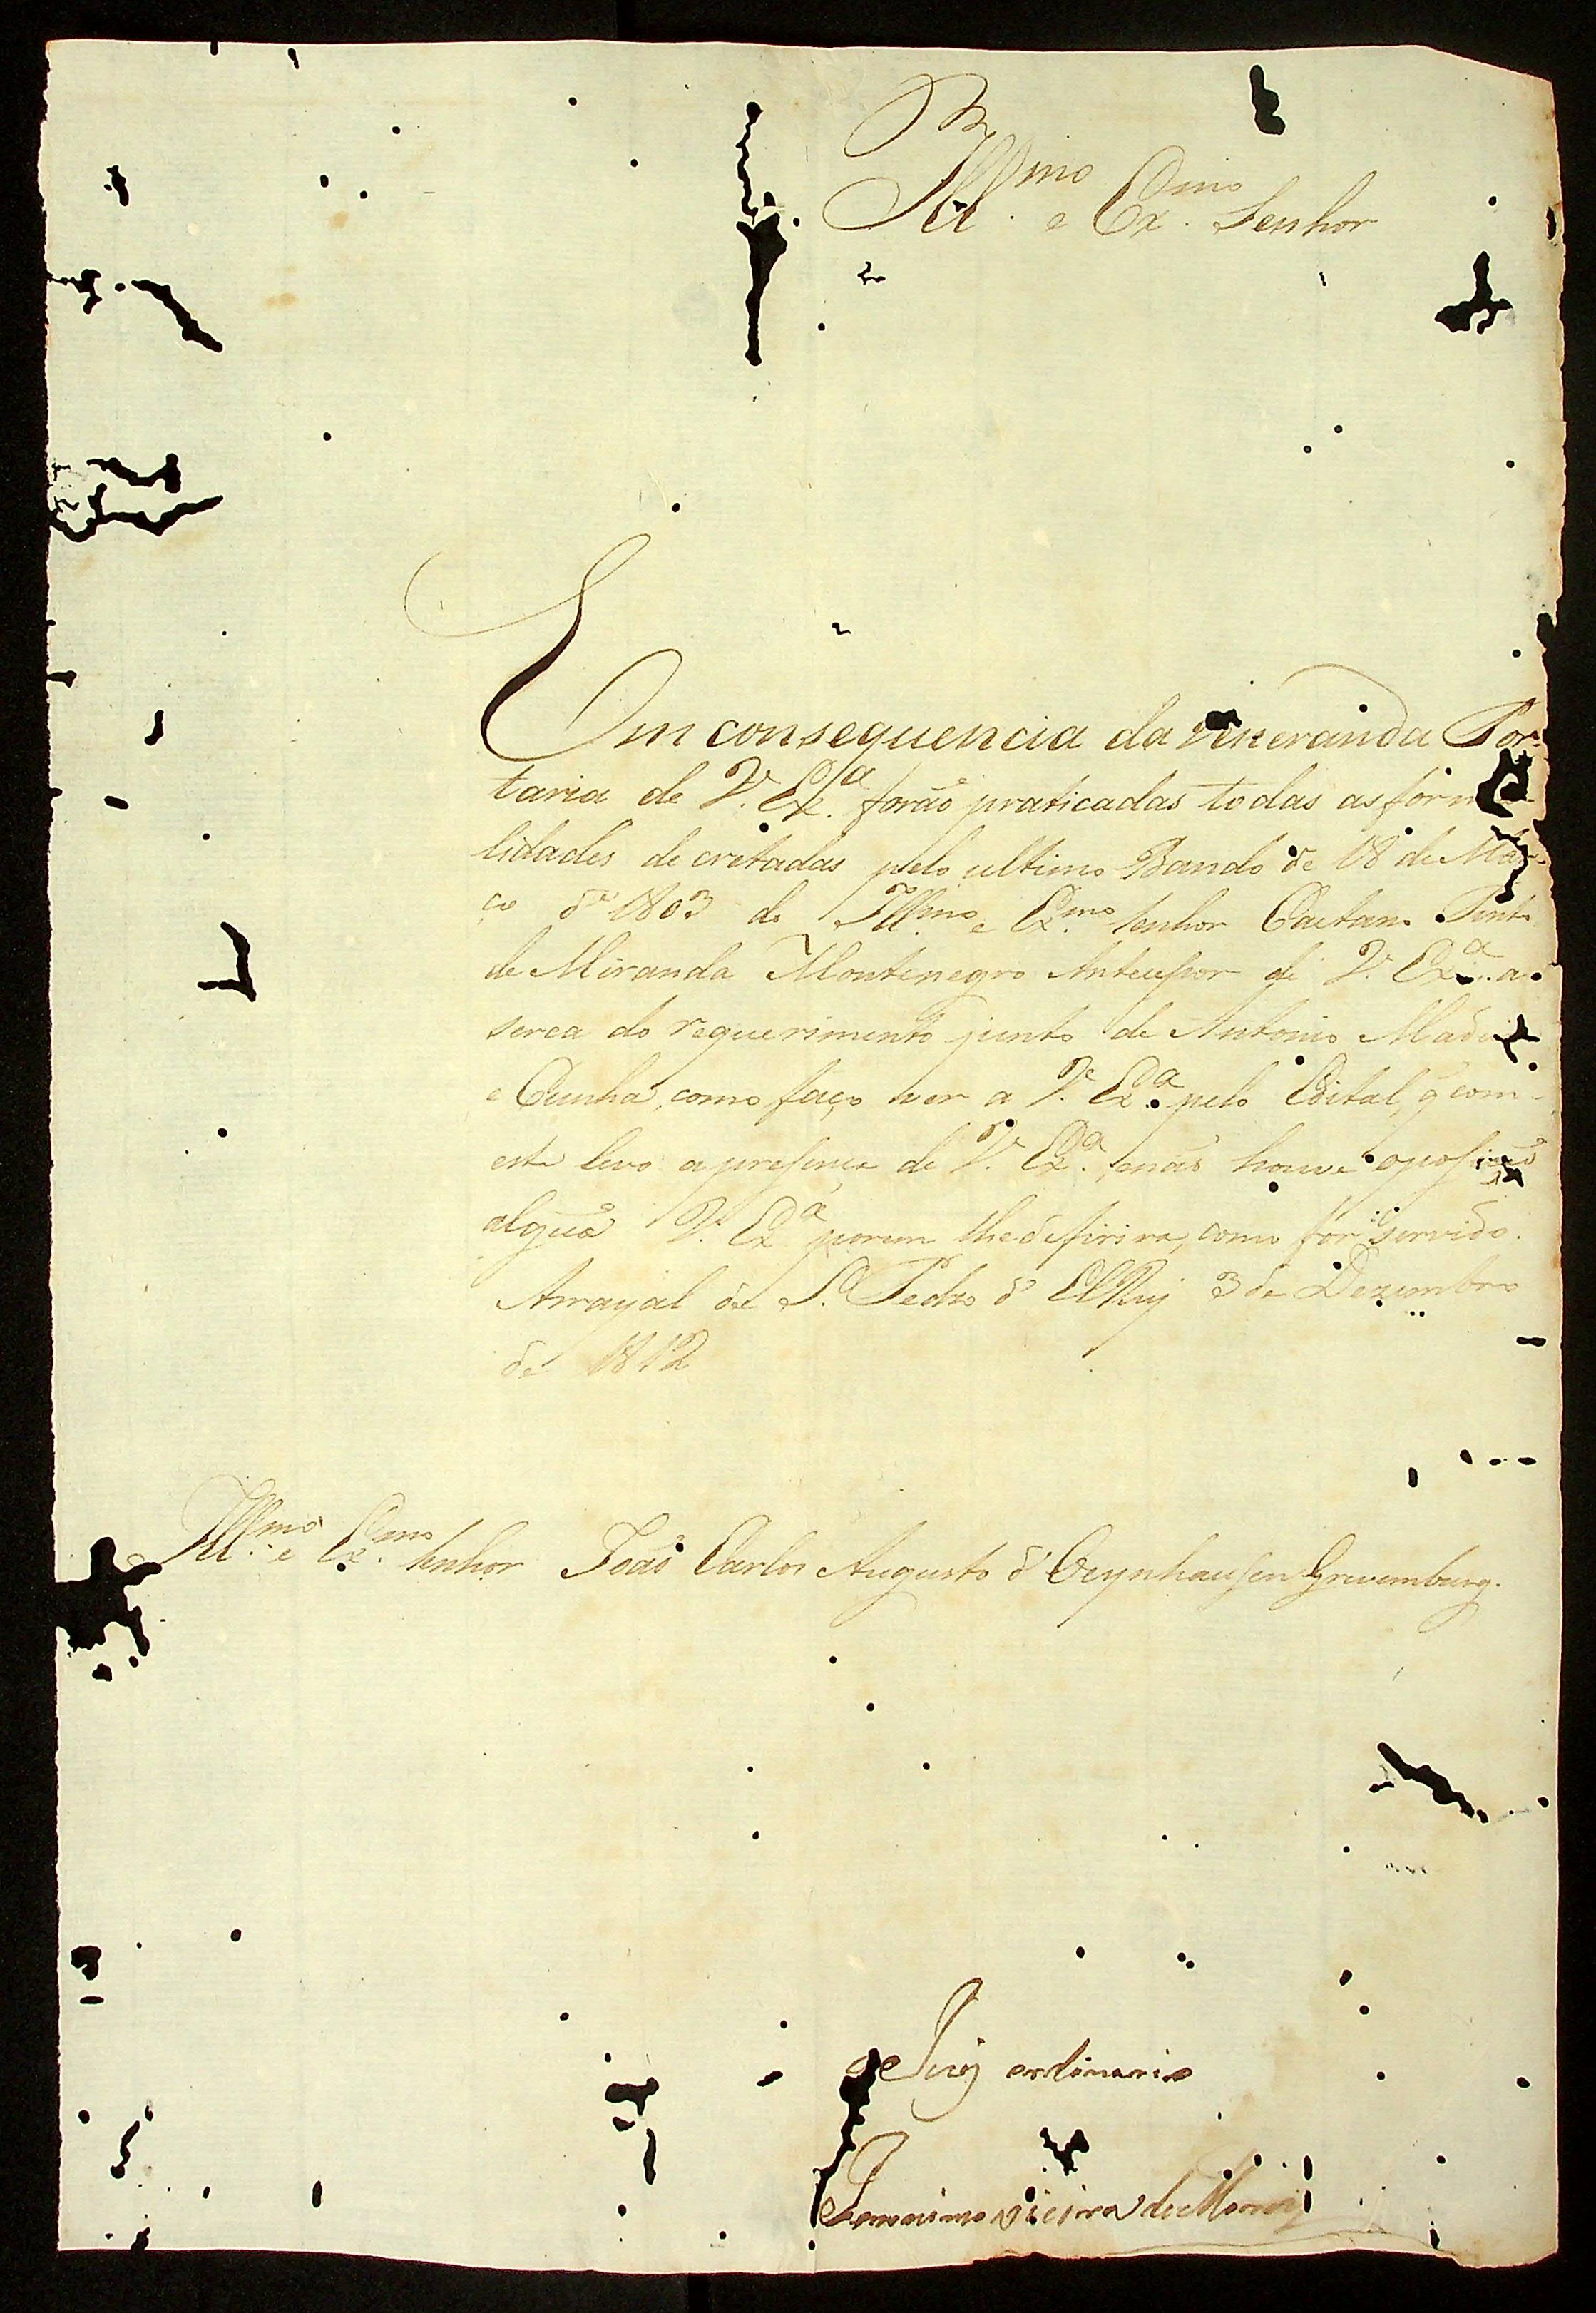 Ill.mo e Ex.mo Senhor
Em consequencia da veneranda Por-
taria de V. Ex.a forão praticadas todas as forma-
lidades decretadas pelo ultimo Bando de 18 de Mar-
ço de 1803 do Ill.mo e Ex.mo Senhor Caetano Pinto
de Miranda Montenegro Antecessor de V. Ex.a a
serca do requerimento junto de Antonio
e Cunha, como faço ver a V. Ex.a pelo Edital, q̃ com
este levo a presença de V. Ex.a, e não houve oposição
algũa V. Ex.a porem lhe defirira, como for servido.
Arrayal de S. Pedro d' ElRey 3 de Dezembro
de 1812
Ill.mo e Ex.mo Senhor João Carlos Augusto d' Oeynhausen Grevemburg.
Juiz ordinario
Jeronimo Vieira de Moraiz